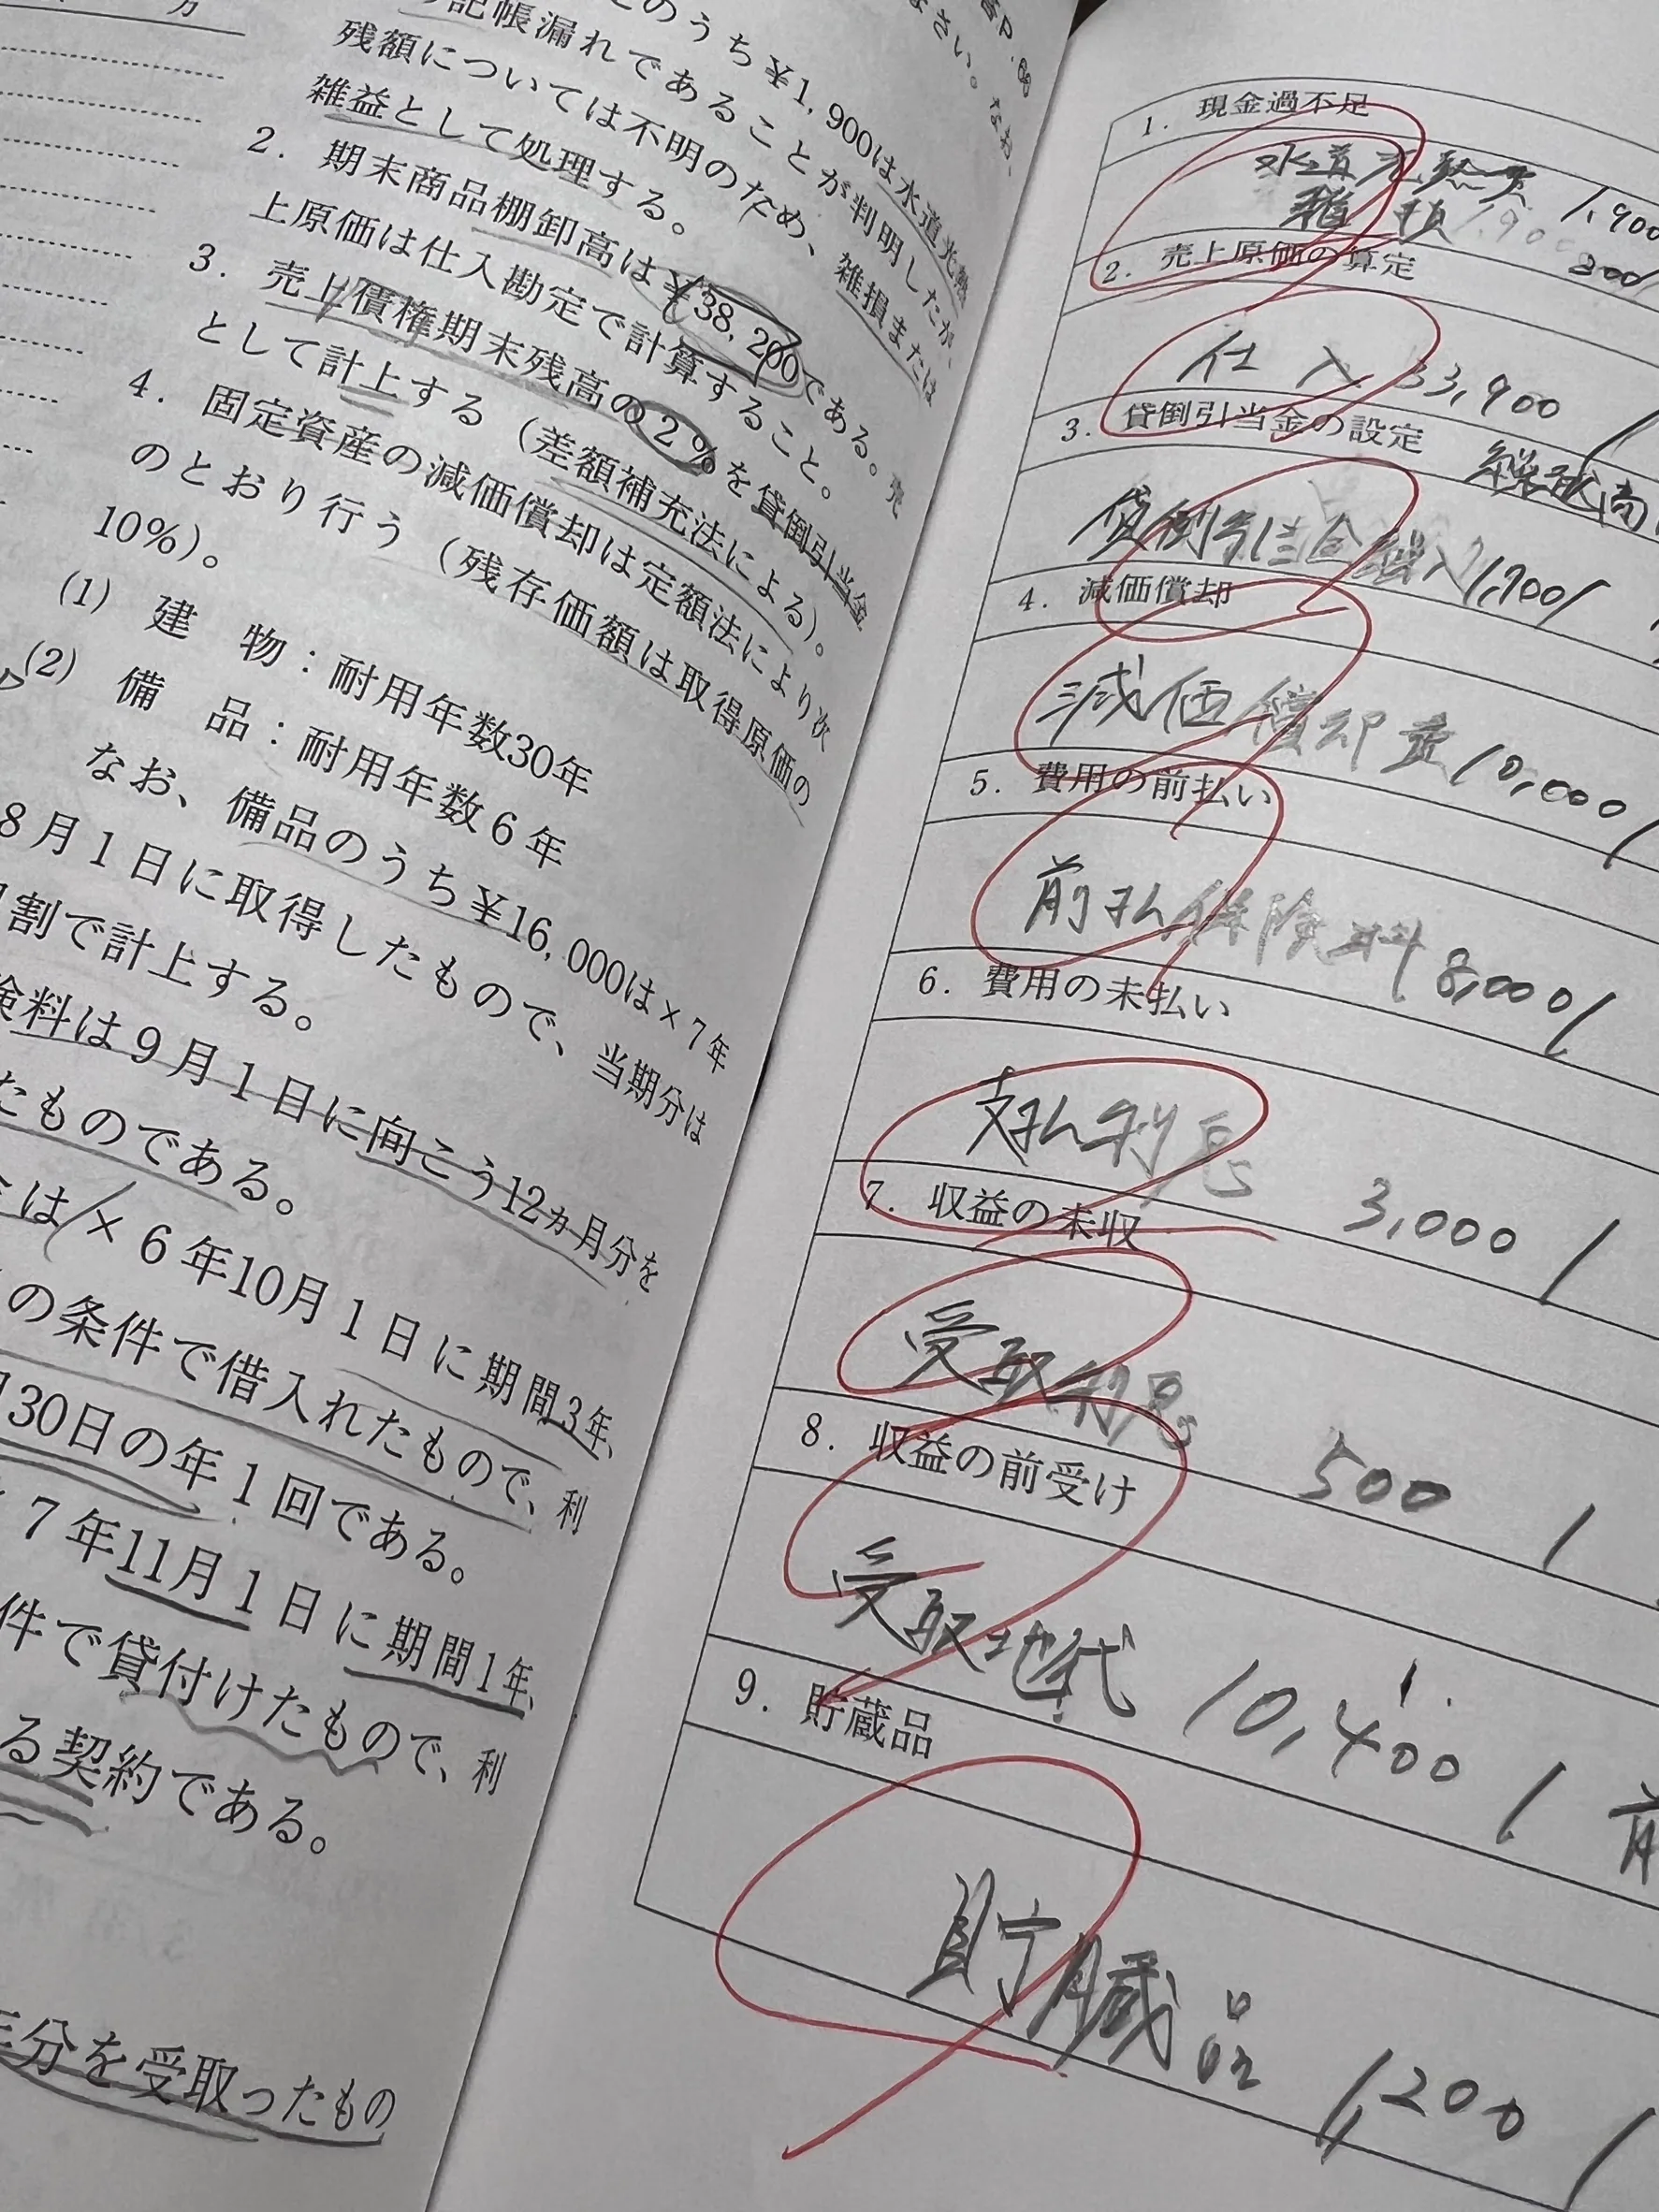 方
のうち¥1,900は水道光熱
記帳漏れであることが判明したが、
残額については不明のため、雑損または
雑益として処理する。
2. 期末商品棚卸高は¥38,200である。売
上原価は仕入勘定で計算すること。
3. 売上債権期末残高の2%を貸倒引当金
として計上する（差額補充法による）。
4. 固定資産の減価償却は定額法により次
のとおり行う（残存価額は取得原価の
10%）。
(1) 建 物：耐用年数30年
(2) 備 品：耐用年数6年
なお、備品のうち¥16,000は×7年
8月1日に取得したもので、当期分は
割で計上する。
険料は9月1日に向こう12ヵ月分を
たものである。
は×6年10月1日に期間3年、
の条件で借入れたもので、利
30日の年1回である。
7年11月1日に期間1年、
件で貸付けたもので、利
る契約である。
分を受取ったもの
答P.68
なさい。なお、
1. 現金過不足
水道光熱費 1,900
雑 損 200
2. 売上原価の算定
仕 入 33,900
繰越商
3. 貸倒引当金の設定
貸倒引当金繰入 1,700
4. 減価償却
減価償却費 10,000
5. 費用の前払い
前払保険料 8,000
6. 費用の未払い
支払利息 3,000
7. 収益の未収
受取利息 500
8. 収益の前受け
受取地代 10,400 前
9. 貯蔵品
貯蔵品 1,200